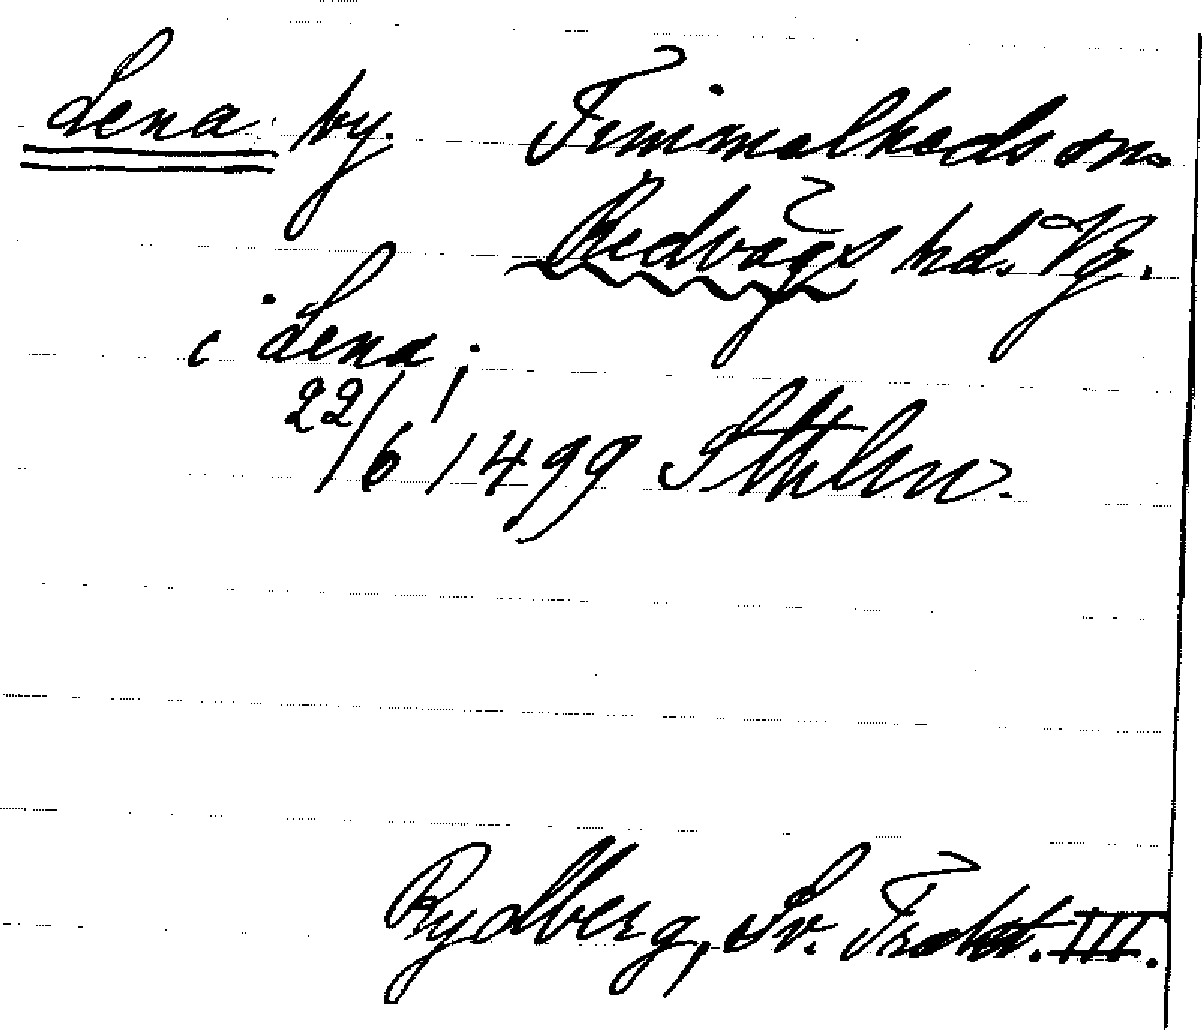 Lena by. Timmelheds sn.
Redvägs hd. Vg.
i Lena,
22/6 1499 Sthlm.
Rydberg, Sv. Trakt. III.